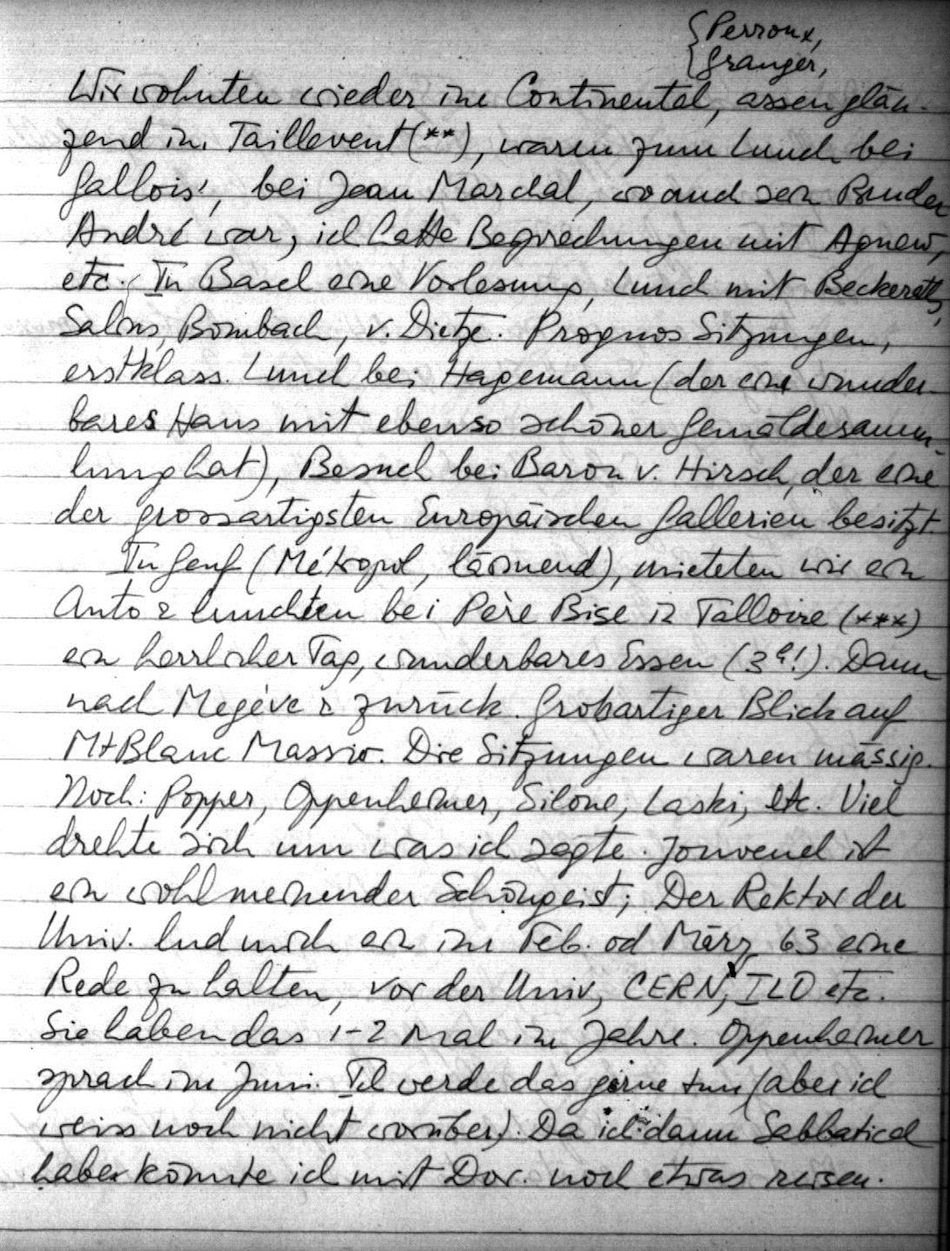 {Perroux,
{Granger,
Wir wohnten wieder im Continental, assen glän-
zend im Taillevent (**), waren zum Lunch bei
Gallois', bei Jean Marchal, wo auch sein Bruder
André war, ich hatte Besprechungen mit Agnew,
etc. In Basel eine Vorlesung, Lunch mit Beckeraths,
Salins, Bombach, v. Dietze. Prognos Sitzungen,
erstklass. Lunch bei Hagemann (der ein wunder-
bares Haus mit ebenso schöner Gemäldesamm-
lung hat), Besuch bei Baron v. Hirsch, der eine
der grossartigsten Europäischen Gallerien besitzt.
In Genf (Métropol, lärmend), mieteten wir ein
Auto & lunchten bei Père Bise in Talloire (***)
ein herrlicher Tag, wunderbares Essen (3 !). Dann
nach Megève & zurück. Großartiger Blick auf
Mt Blanc Massiv. Die Sitzungen waren mässig.
Noch: Popper, Oppenheimer, Silone, Laski, etc. Viel
drehte sich um was ich sagte. Jouvenel ist
ein wohlmeinender Schöngeist; Der Rektor der
Univ. lud mich ein im Feb. od März 63 eine
Rede zu halten, vor der Univ, CERN, ILO etc.
Sie haben das 1-2 mal im Jahre. Oppenheimer
sprach im Juni. Ich werde das gerne tun (aber ich
weiss noch nicht worüber). Da ich dann Sabbatical
habe könnte ich mit Dor. noch etwas reisen.